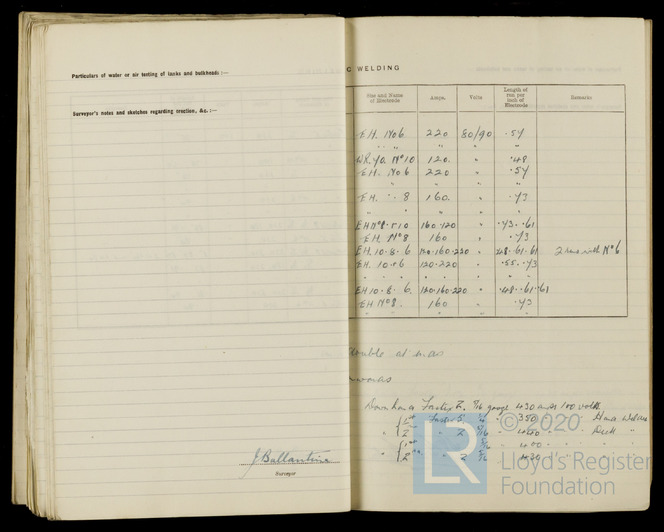 Particulars of water or air testing of tanks and bulkheads :—
Surveyor's notes and sketches regarding erection, &c. :—
J Ballantine
Surveyor
C WELDING
Size and Name of Electrode Amps. Volts Length of run per inch of Electrode Remarks
E.H. No 6 220 80/90 .54
" " " " "
No 10 120. " .48
E.H. No 6 220 " .54
" " " "
E.H. " 8 160. " .73
" " " " "
E H No 8 10 160.120 " .73. .61
E.H. No 8 160 " .73
E.H. 10.8.6 120.160.220 " .48.61.61 2 runs with No 6
E.H. 10.6 120-220 " .55. .73
" " " " "
E H 10.8.6. 120.160.220 " .48..61.61
E H No 8. 160 " .73
" " " "
double at
Down hand Fastex 7/16 gauge 430 amps 100 volts
1st Fastex 5 350 " " Hand Welder
2 " 5/16 400 " " Deck "
" 1st " 5/16 " 400 " " " "
2 " 430 " " " "
© 2020
LR
Lloyd's Register
Foundation